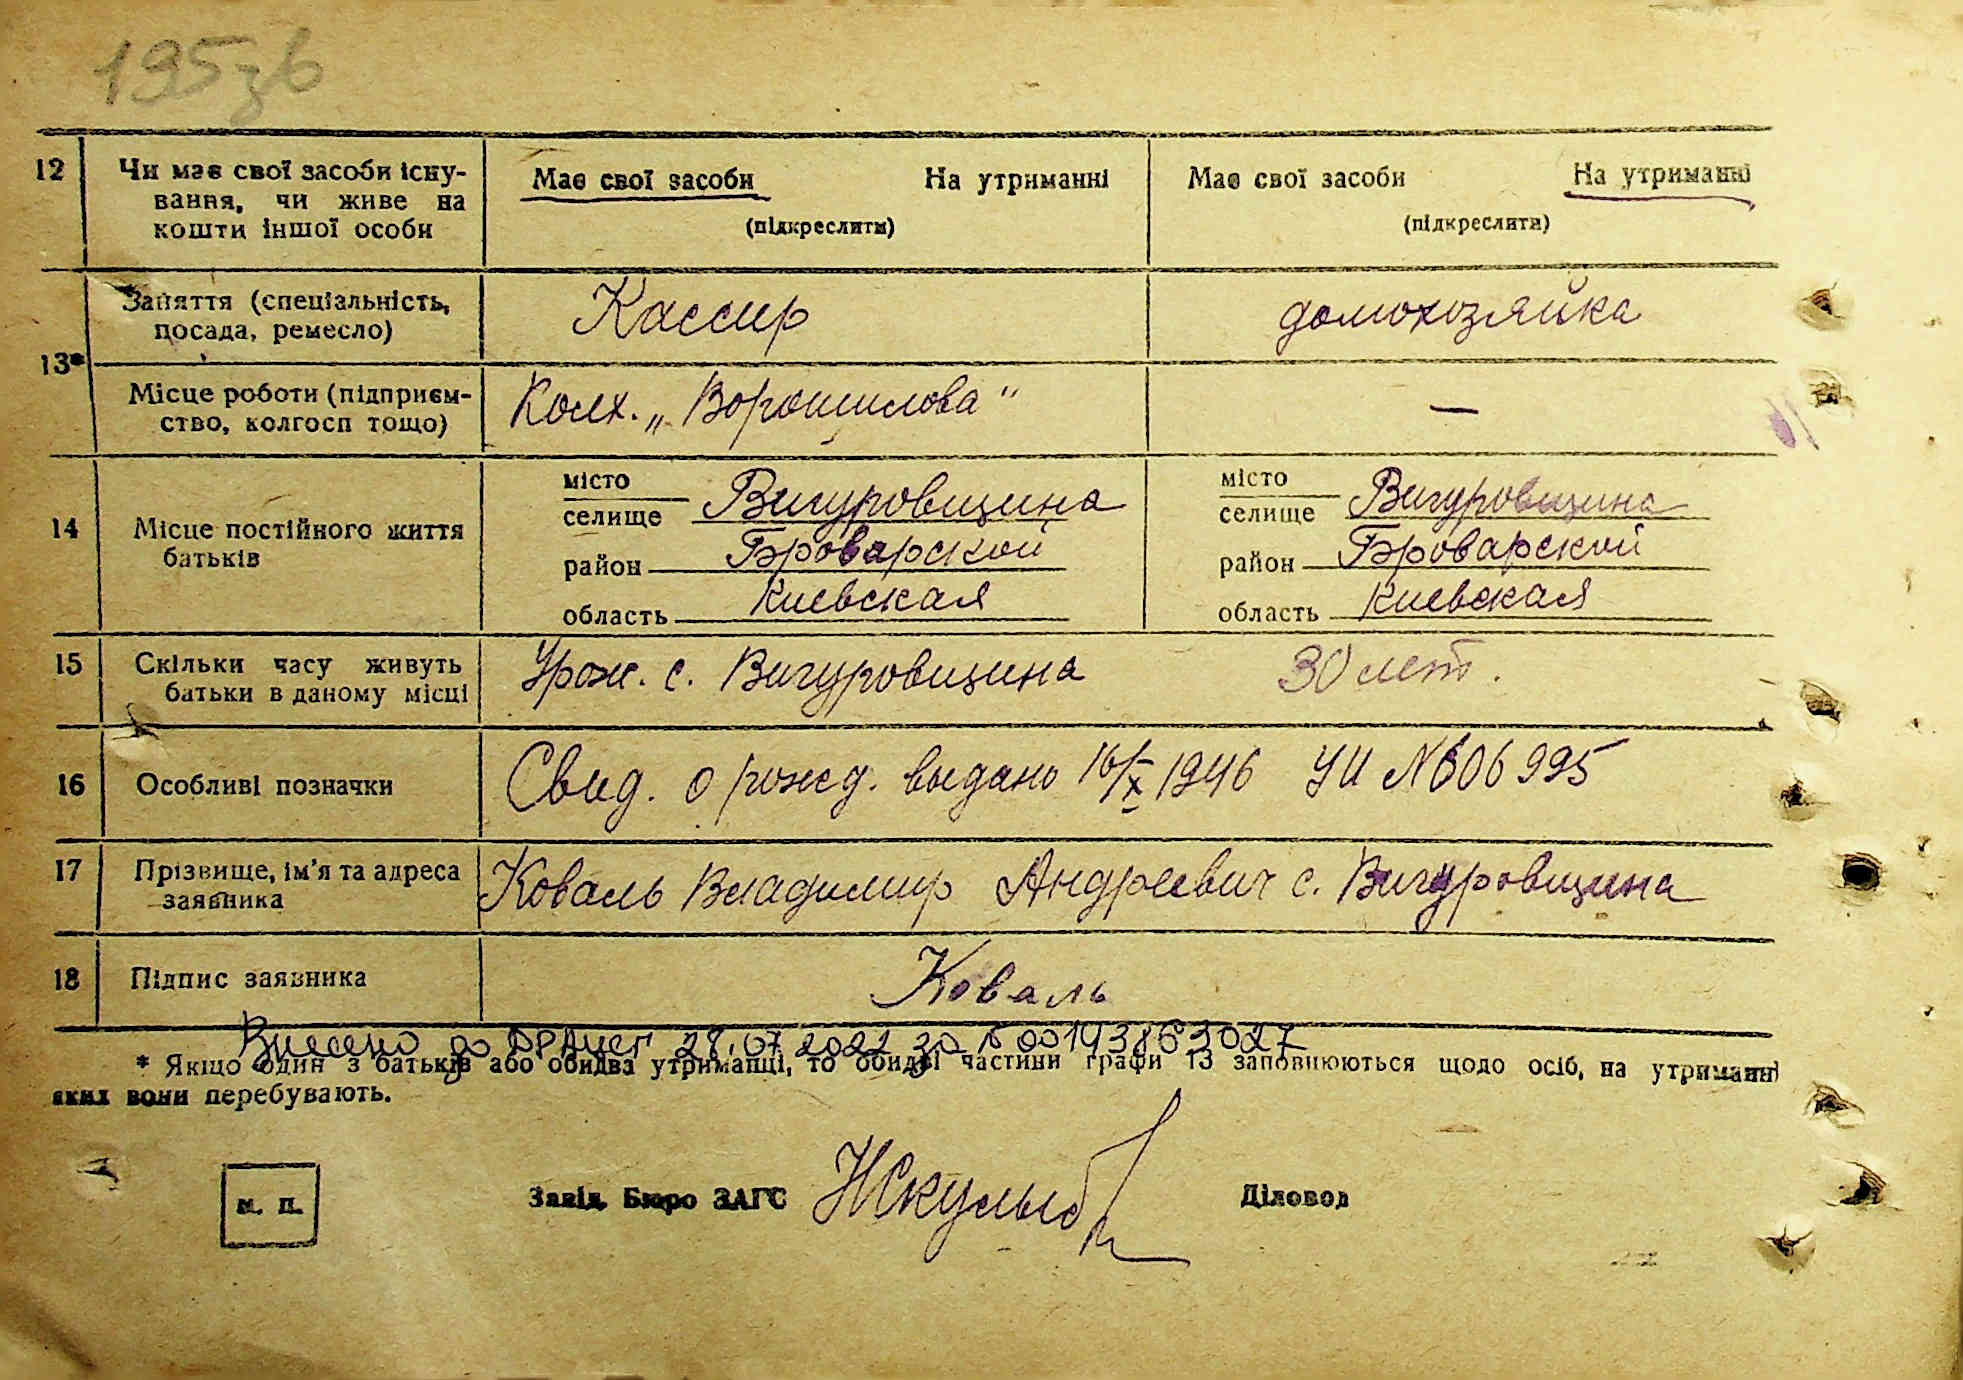 195зв
12 Чи має свої засоби існу-
вання, чи живе на
кошти іншої особи
Має свої засоби На утриманні
(підкреслити)
Має свої засоби На утриманні
(підкреслити)
13*
Заняття (спеціальність,
посада, ремесло)
Кассир
домохозяйка
Місце роботи (підприєм-
ство, колгосп тощо)
Колх. „Ворошилова"
—
14 Місце постійного життя
батьків
місто
селище Вигуровщина
район Броварской
область Киевская
місто
селище Вигуровщина
район Броварской
область Киевская
15 Скільки часу живуть
батьки в даному місці
Урож. с. Вигуровщина
30 лет.
16 Особливі позначки
Свид. о рожд. выдано 16/X 1946 УИ №606995
17 Прізвище, ім'я та адреса
заявника
Коваль Владимир Андреевич с. Вигуровщина
18 Підпис заявника
Коваль
Внесено до ДРАЦСГ 28.07.2022 за № 00193863027
* Якщо один з батьків або обидва утриманці, то обидві частини графи 13 заповнюються щодо осіб, на утриманні
яких вони перебувають.
м. п.
Завід. Бюро ЗАГС
Діловод